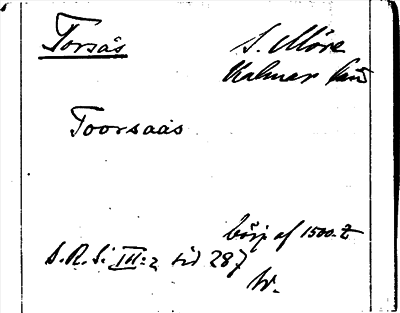 Torsås
S. Möre
Kalmar län
Toorsaas
börj af 1500-t
S.R.S. III:2 sid 287
W.